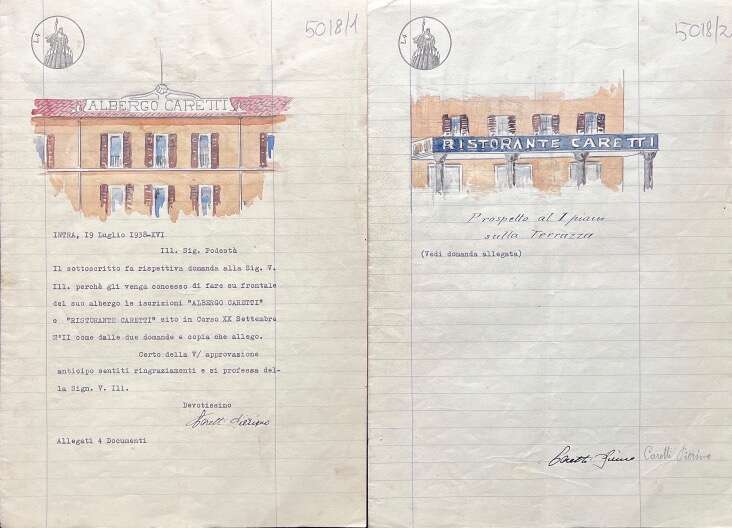 L4
5018/1
ALBERGO CARETTI
INTRA, 19 Luglio 1938-XVI
Ill. Sig. Podestà
Il sottoscritto fa rispettiva domanda alla Sig. V.
Ill. perchè gli venga concesso di fare su frontale
del suo albergo le iscrizioni "ALBERGO CARETTI"
e "RISTORANTE CARETTI" sito in Corso XX Settembre
N°II come dalle due domande e copia che allego.
Certo della V/ approvazione
anticipo sentiti ringraziamenti e si professa del-
la Sign. V. Ill.
Devotissimo
Allegati 4 Documenti
L4
5018/2
RISTORANTE CARETTI
Prospetto al I piano
sulla Terrazza
(Vedi domanda allegata)
Caretti Fiorino